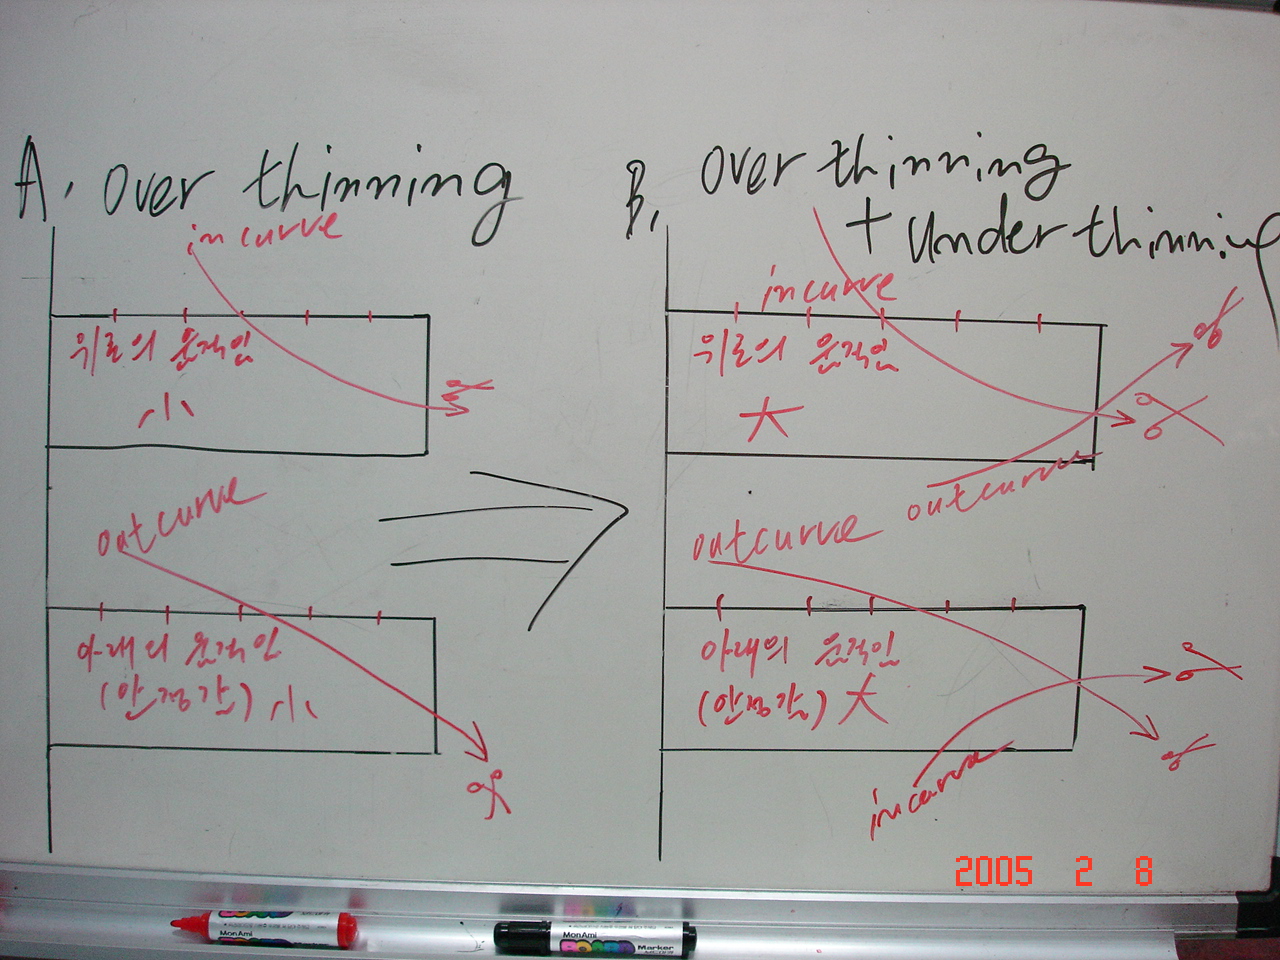 A. over thinning
incurve
위로의 움직임
小
outcurve
아래의 움직임
(안정감) 小
B. over thinning
+ under thinning
incurve
위로의 움직임
大
outcurve
outcurve
아래의 움직임
(안정감) 大
incurve
2005 2 8
MonAmi
MonAmi
Marker